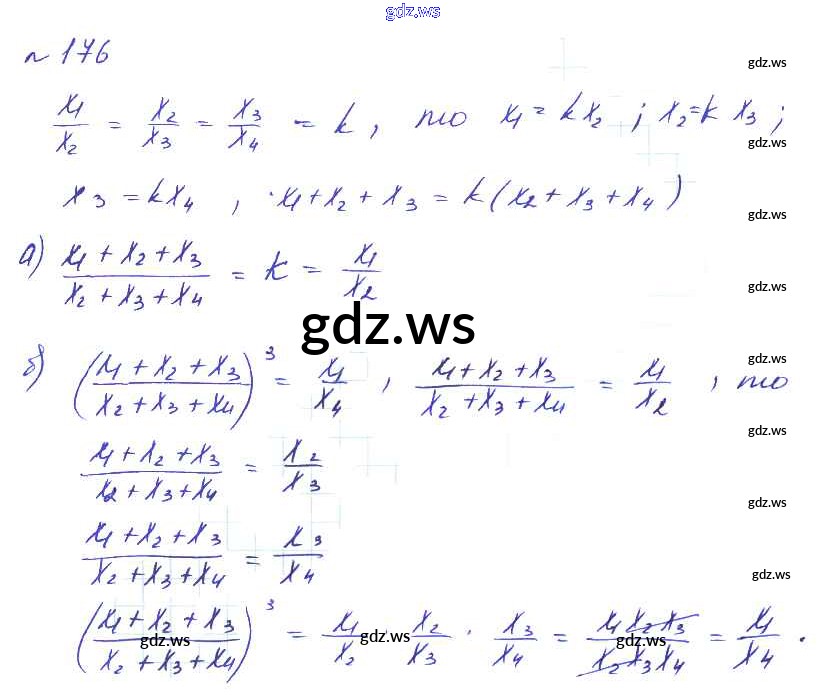 gdz.ws
№ 176
gdz.ws
x₁/x₂ = x₂/x₃ = x₃/x₄ = k, то x₁ = kx₂ ; x₂ = k x₃ ;
gdz.ws
x₃ = kx₄ , x₁ + x₂ + x₃ = k(x₂ + x₃ + x₄)
gdz.ws
а) (x₁ + x₂ + x₃)/(x₂ + x₃ + x₄) = k = x₁/x₂
gdz.ws
gdz.ws
б) ((x₁ + x₂ + x₃)/(x₂ + x₃ + x₄))³ = x₁/x₄ , (x₁ + x₂ + x₃)/(x₂ + x₃ + x₄) = x₁/x₂ , то
gdz.ws
gdz.ws
(x₁ + x₂ + x₃)/(x₂ + x₃ + x₄) = x₂/x₃
gdz.ws
(x₁ + x₂ + x₃)/(x₂ + x₃ + x₄) = x₃/x₄
gdz.ws
((x₁ + x₂ + x₃)/(x₂ + x₃ + x₄))³ = x₁/x₂ · x₂/x₃ · x₃/x₄ = (x₁x₂x₃)/(x₂x₃x₄) = x₁/x₄ .
gdz.ws gdz.ws gdz.ws gdz.ws